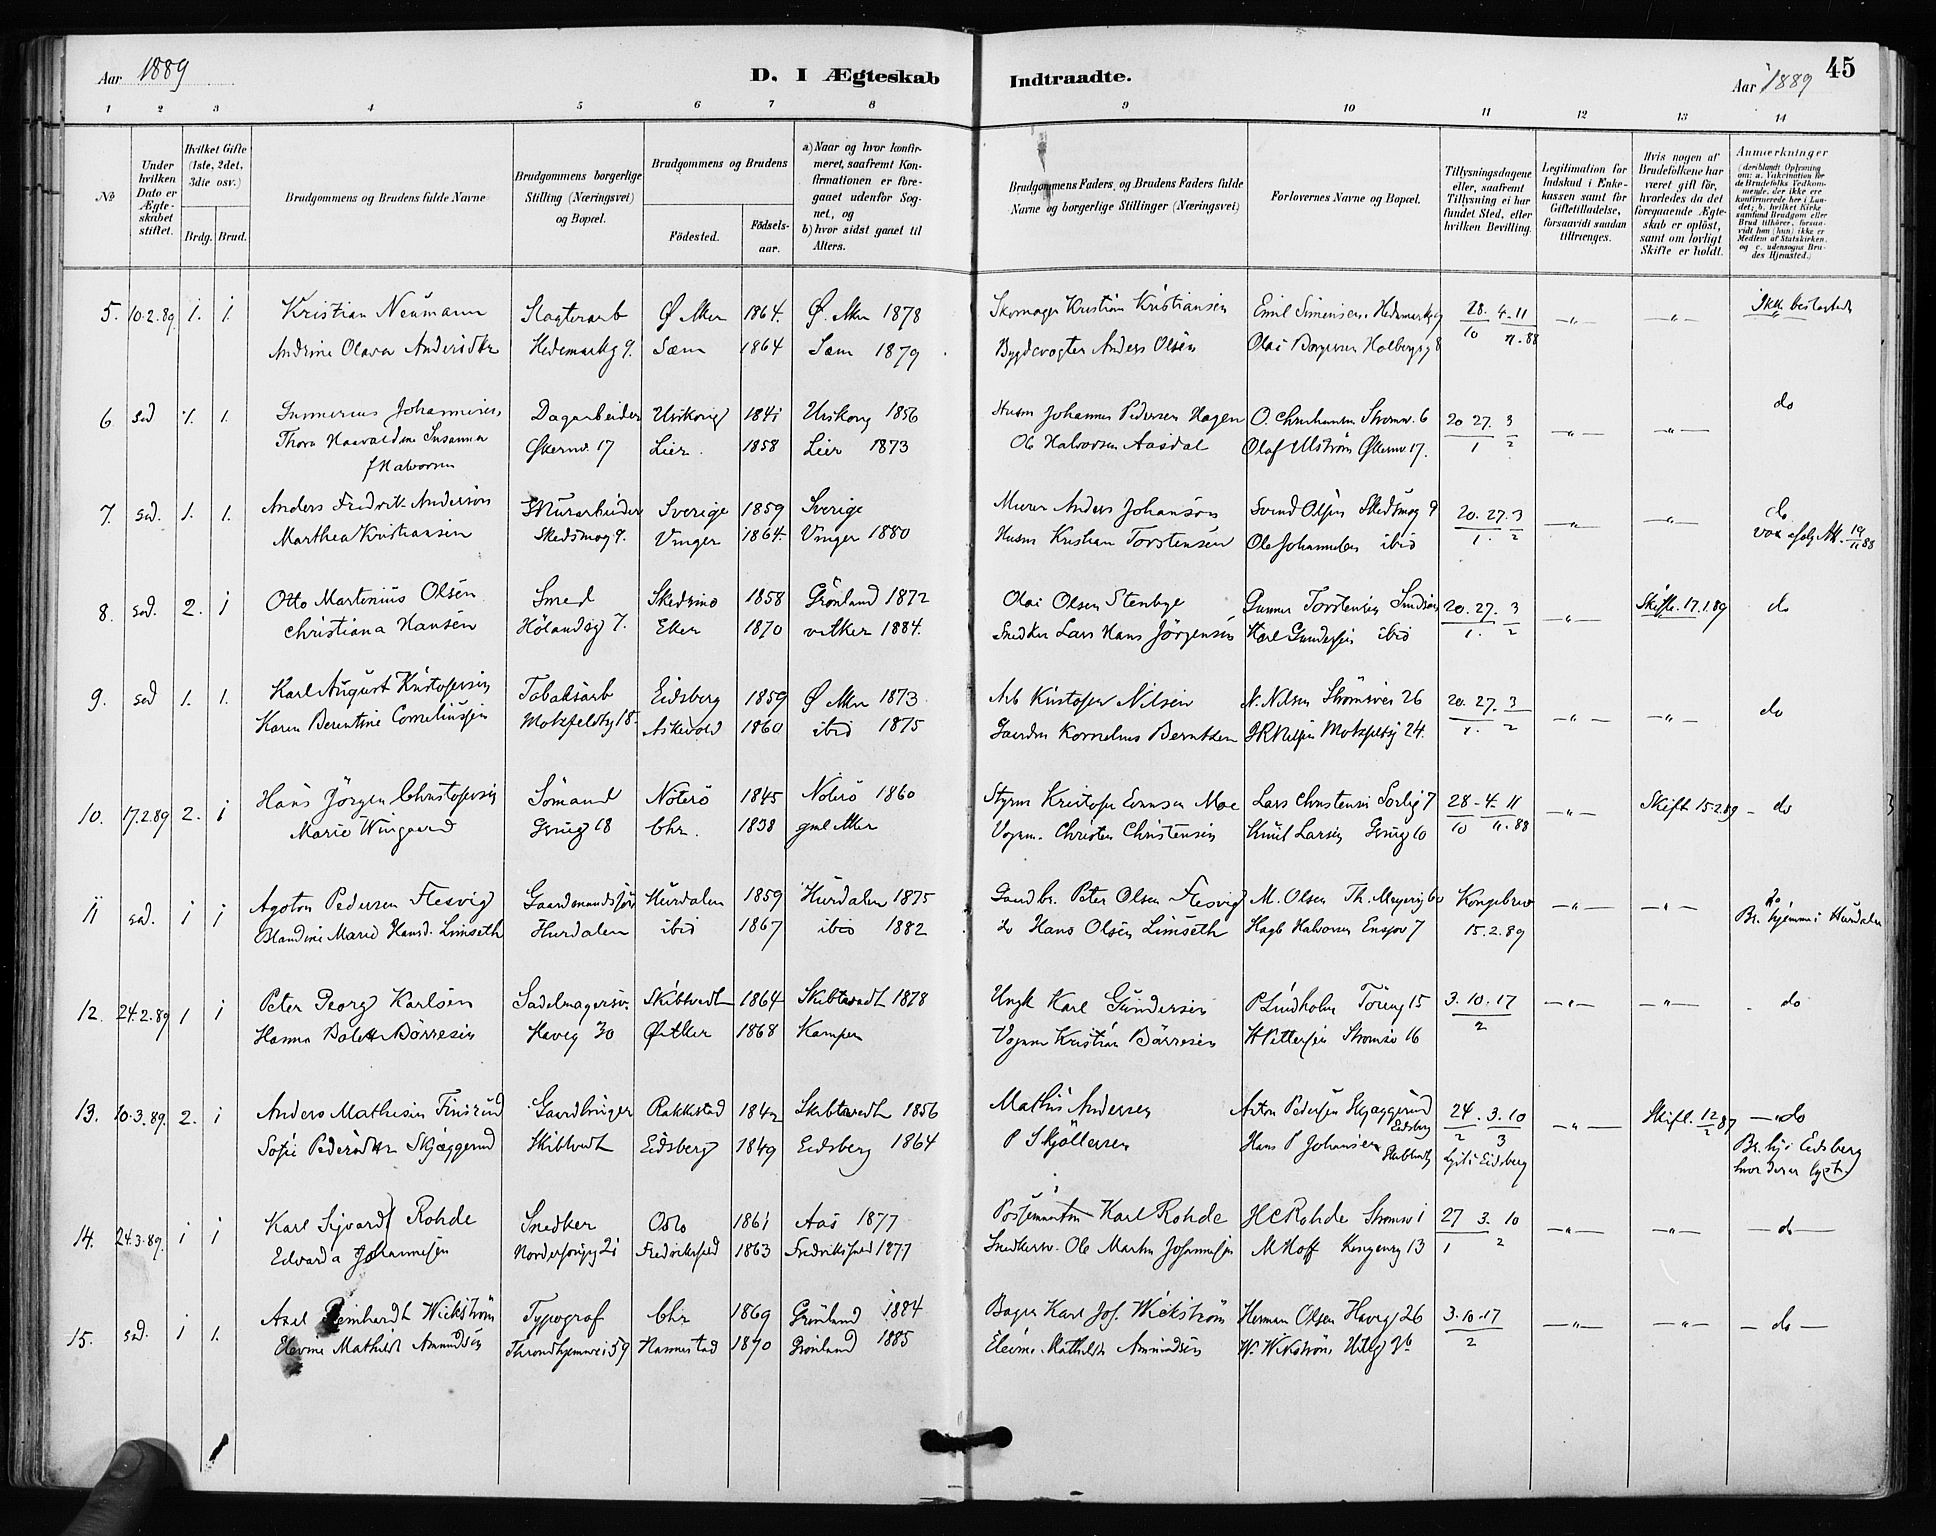 Aar 1889
D. I Ægteskab Indtraadte.
Aar 1889
45
1 2 3 4 5 6 7 8 9 10 11 12 13 14
№
Under hvilken Dato er Ægteskabet stiftet.
Hvilket Gifte (1ste, 2det, 3die osv.)
Brdg. Brud.
Brudgommens og Brudens fulde Navne
Brudgommens borgerlige Stilling (Næringsvei) og Bopæl.
Brudgommens og Brudens
Födested.
Födselsaar.
a) Naar og hvor konfirmeret, saafremt Konfirmationen er foregaaet udenfor Sognet, og
b) hvor sidst gaaet til Alters.
Brudgommens Faders, og Brudens Faders fulde Navne og borgerlige Stillinger (Næringsvei)
Forlovernes Navne og Bopæl.
Tillysningsdagene eller, saafremt Tillysning ei har fundet Sted, efter hvilken Bevilling.
Legitimation for Indskud i Enkekassen samt for Giftetilladelse, forsaavidt saadan tiltrænges.
Hvis nogen af Brudefolkene har været gift för, hvorledes da det foregaaende Ægteskab er oplöst, samt om lovligt Skifte er holdt.
Anmærkninger (deriblandt Oplysning om: a. Vakcination for de Brudefolks Vedkommende, der ikke ere konfirmerede her i Landet; b. hvilket Kirkesamfund Brudgom eller Brud tilhörer, forsaavidt han (hun) ikke er Medlem af Statskirken, og c. udensogns Brudes Hjemsted.)
5. 10.2.89 1. 1. Kristian Neumann Slagterarb Ø. Aker 1864. Ø. Aker 1878 Skomager Kristian Kristiansen Emil Simensen Hedemarkg 28. 4. 11 —"— —"— Ikke beslægtede
Andrine Olava Andersdtr Hedemarkg 9. Sæm 1864 Sem 1879 Bygdevogter Anders Olsen Olai Borgersen Holbergsg 8 10 11. 88
6. sad 1. 1. Gunnerius Johannesen Dagarbeider Urskoug 1841 Urskoug 1856 Husm Johannes Pedersen Hagen O. Christiansen Strømsv. 6 20 27. 3 —"— —"— do
Thora Haavaldine Susanna Økernv. 17 Lier. 1858 Lier 1873 Ole Halvorsen Aasdal Olaf Ulström Økernv 17. 1 2
f Halvorsen
7. sad. 1. 1. Anders Fredrik Anderson Murarbeider Sverige 1859 Sverige Murer Anders Johanson Svend Olsen Skedsmog 9 20. 27. 3 —"— —"— do
Marthea Kristiansen Skedsmog 9. Vinger 1864. Vinger 1880 Husm Kristian Torstensen Ole Johannesen ibid 1. 2 19/11 88
8. sad. 2. 1 Otto Martinius Olsen Smed Skedsmo 1858 Grönland 1872 Olai Olsen Stenbye Gunner Torstensen 20. 27. 3 —"— Skifte. 17.1.89 do
Christiana Hansen Hölandsg 7. Eker 1870 1884. Snedker Lars Hans Jörgensen Karl Gundersen ibid 1. 2
9. sad 1. 1. Karl August Kristofersen Tobaksarb Eidsberg 1859 Ø Aker 1873 Arb Kristofer Nilsen N. Nilsen Strömsvei 26 20. 27. 3 —"— —"— do
Karen Berentine Corneliussen Motzfeldtg 18. Askevold 1860 ibid 1875 Gaardm Kornelius Berntsen Motzfeldtg 24. 1. 2
10. 17.2.89 2. 1 Hans Jörgen Christofersen Sömand Nöterö 1845 Nöterö 1860 Styrm Kristofer Evensen Moe Lars Christensen Sorlig 7 28 - 4. 11 —"— Skift 15.2.89 - do
Marie Wingaard Grug 18 Chr. 1838 gml Aker Vogm. Christen Christensen Knut Larsen Grug 10 10 11. 88
11 sad. 1 1 Agoton Pedersen Flesvig Hurdalen 1859 Hurdalen 1875 Gaardbr. Peter Olsen Flesvig M. Olsen Th. Meyersg Kongebrev —"— —"— do
Blandine Marie Hansd. Limseth Hurdalen ibid 1867 ibid 1882 do Hans Olsen Limseth Hagb Halvorsen Ensjøv 7 15.2.89 Br. hjemme i Hurdalen
12. 24.2.89 1 1 Peter Georg Karlsen Sadelmagersv. Skibtvedt 1864 Skibtvedt 1878 Ungk Karl Gundersen P Lindholm Töieng 15 3. 10. 17 —"— —"— do
Hanna Bolette Börresen Haveg 30 Ø Aker 1868 Kampen Vognm Kristian Börresen H Pettersen Strømsv 16 2
13. 10.3.89. 2. 1 Anders Mathisen Finsrud Gaardbruger Rakkestad 1842 Skibtvedt 1856 Mathis Andersen Anton Pedersen Skjæggerud Eidsberg 24. 3. 10 —"— Skift. 12/2 87 —"do
Sofie Pedersdtr Skjæggerud Skibtvedt Eidsberg 1849 Eidsberg 1864 P Skjöllersen Hans P Johansen 2 3 Br. hj i Eidsberg
lyst i Eidsberg hvor der er lyst
14. 24.3.89. 1 1 Karl Sigvard Rohde Snedker Oslo 1861 Aas 1877 Karl Rohde H C Rohde Strømsv 1 27 3. 10 —"— —"— —do—
Edvarda Johannesen Nordreforg 21 Fredrikshald 1863 Fredrikshald 1877 Snedkersv. Ole Martin Johannesen M Hoff Kongensg 13 1 2
15. sad. 1 1. Axel Reinhardt Wickström Typograf Chr 1869 Grönland 1884 Bager Karl Joh. Wickström Herman Olsen Haveg 26 3. 10. 17 —"— —"— —do—
Elevine Mathilde Amundsen Throndhjemsvei 59 Nannestad 1870 Grönland 1885 Elevine Mathilde Amundsen W. Wickström 2